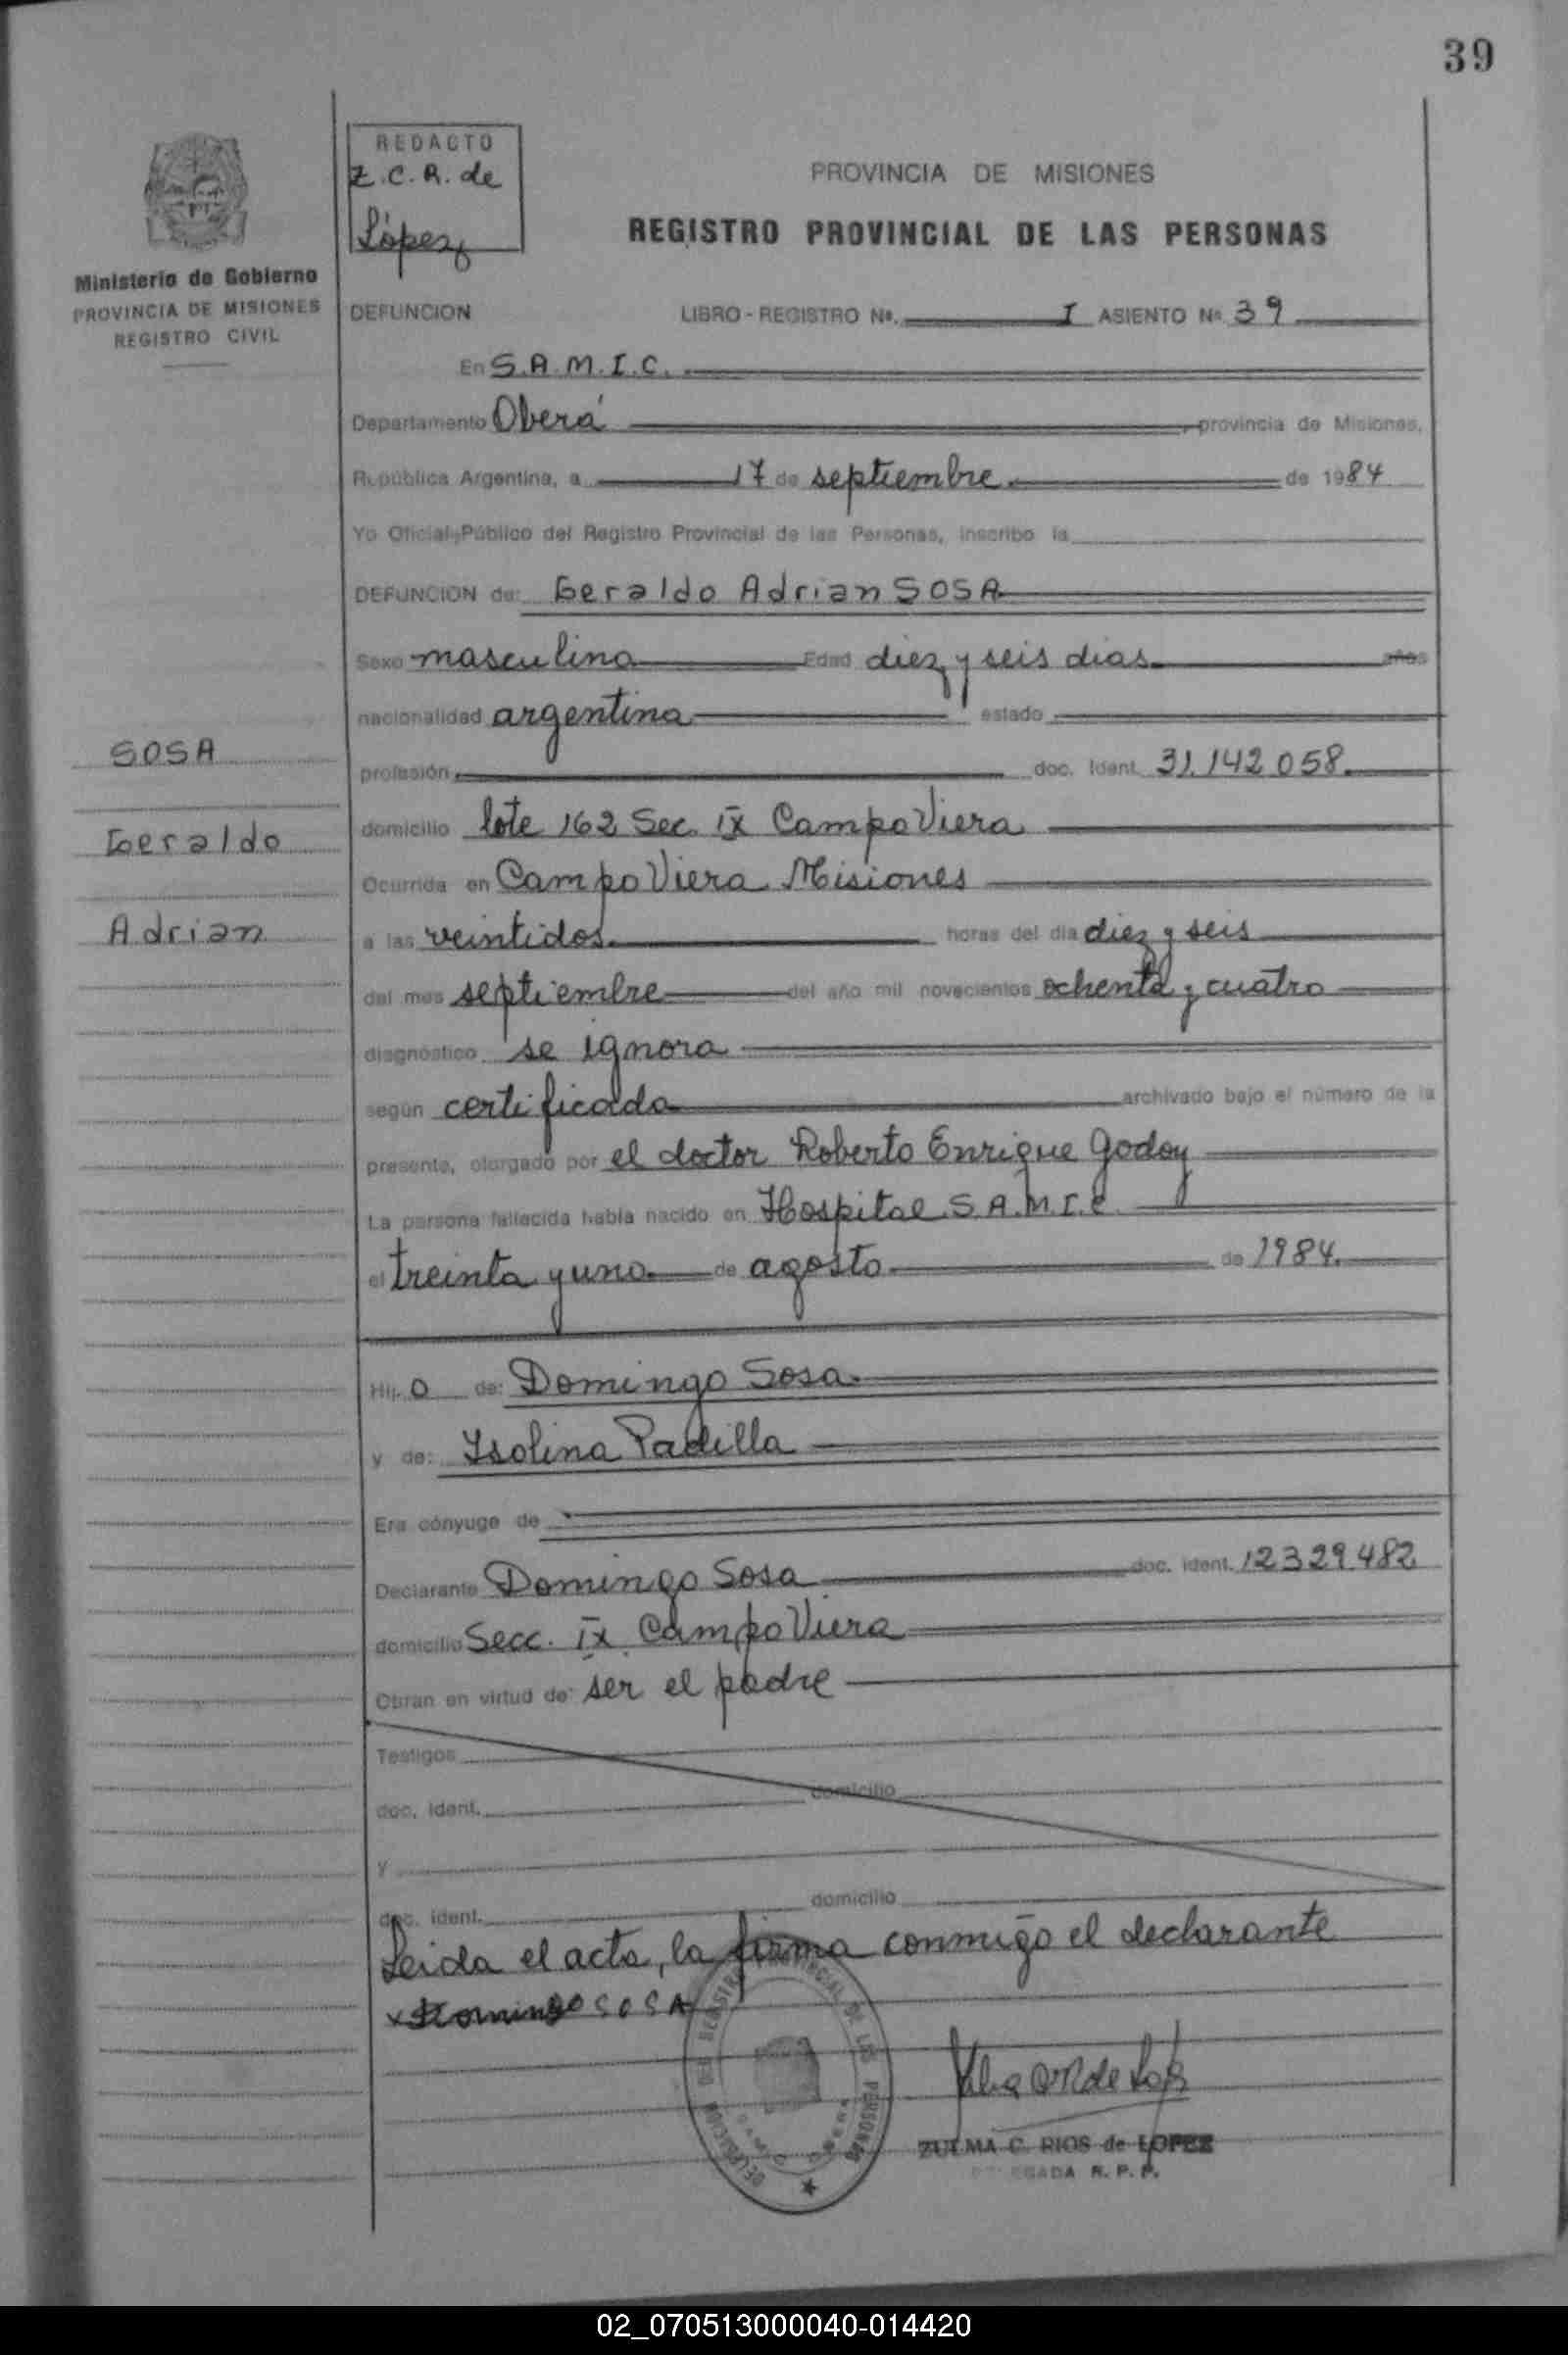 39
REDACTO
Z.C.R. de
López
PROVINCIA DE MISIONES
REGISTRO PROVINCIAL DE LAS PERSONAS
Ministerio de Gobierno
PROVINCIA DE MISIONES
REGISTRO CIVIL
DEFUNCION LIBRO - REGISTRO Nº. I ASIENTO Nº 39
En S.A.M.I.C.
Departamento Oberá, provincia de Misiones,
República Argentina, a 17 de septiembre de 1984
Yo Oficial Público del Registro Provincial de las Personas, inscribo la
DEFUNCION de: Geraldo Adrian SOSA
Sexo masculino Edad diez y seis dias años
nacionalidad argentina estado
SOSA
profesión doc. Ident. 31.142.058
domicilio lote 162 Sec. IX Campo Viera
Geraldo
Ocurrida en Campo Viera Misiones
Adrian
a las veintidos horas del día diez y seis
del mes septiembre del año mil novecientos ochenta y cuatro
diagnóstico se ignora
según certificado archivado bajo el número de la
presente, otorgado por el doctor Roberto Enrique Godoy
La persona fallecida había nacido en Hospital S.A.M.I.C.
el treinta y uno de agosto de 1984.
Hij o de: Domingo Sosa
y de: Isolina Padilla
Era cónyuge de
Declarante Domingo Sosa doc. ident. 12329482
domicilio Secc. IX Campo Viera
Obran en virtud de: ser el padre
Testigos
doc. ident. domicilio
y
doc. ident. domicilio
Leida el acta, la firma conmigo el declarante
x Domingo SOSA
ZULMA C. RIOS de LOPEZ
DELEGADA R. P. P.
02_070513000040-014420